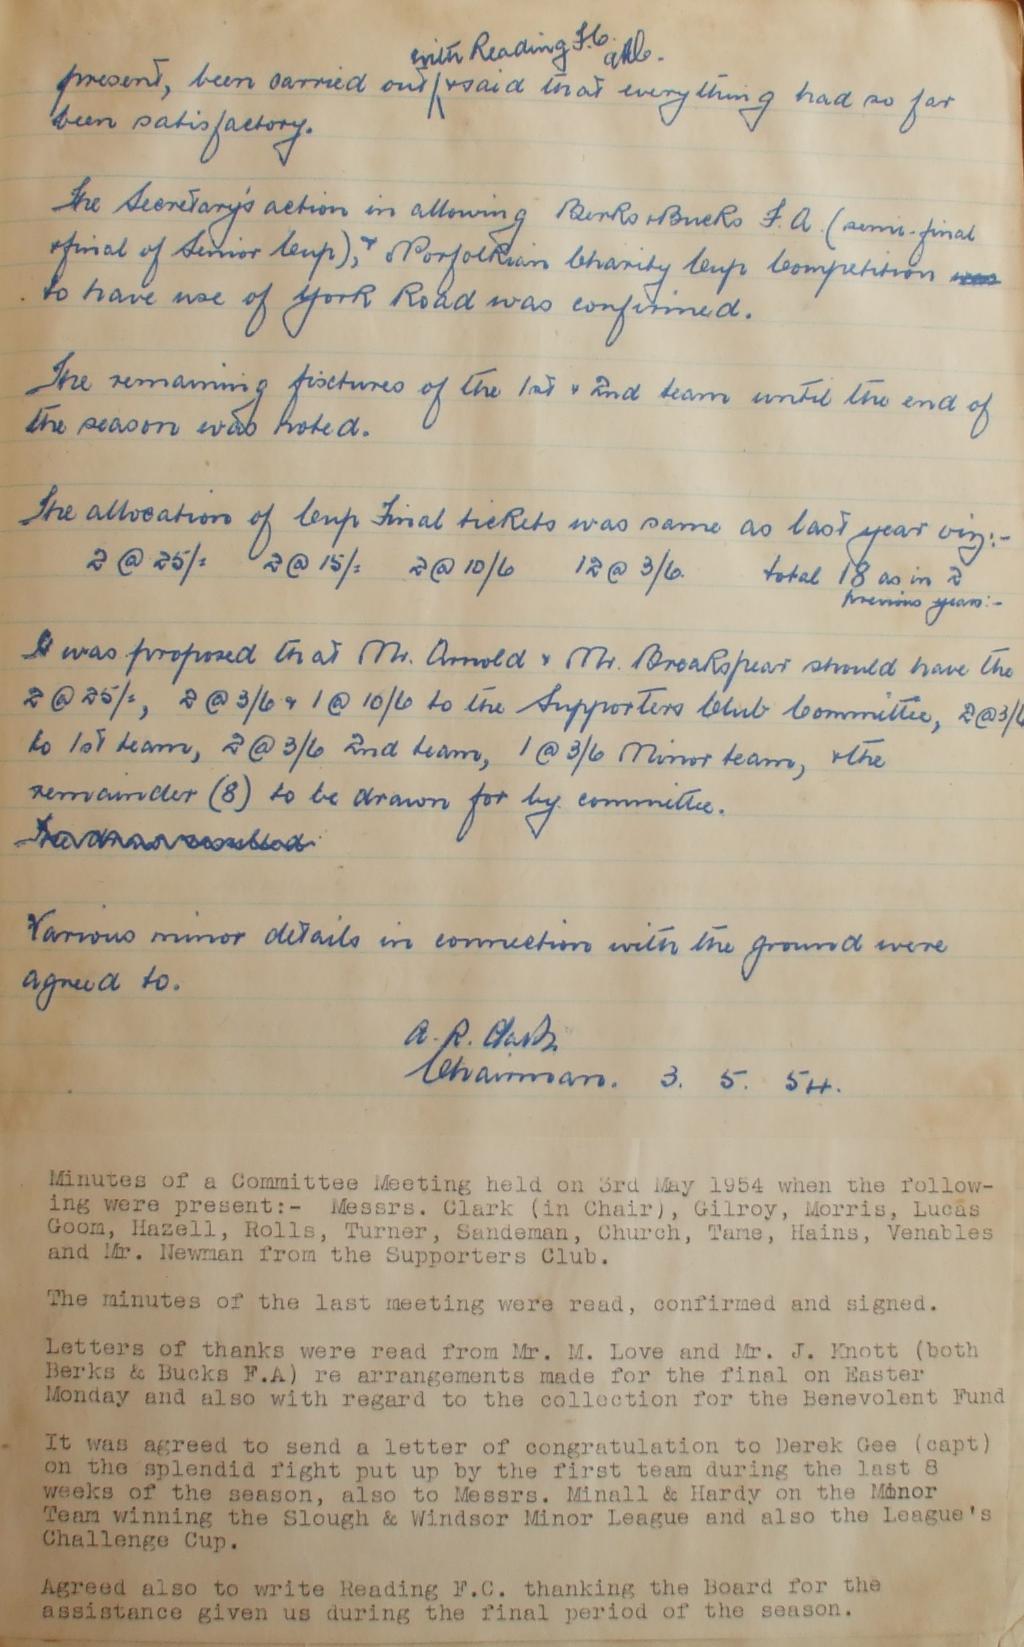 with Reading F.C.
present, been carried out & said that everything had so far
been satisfactory.
The Secretary's action in allowing Berks & Bucks F.A. (semi-final
& final of Senior Cup), & Norfolkian Charity Cup Competition
to have use of York Road was confirmed.
The remaining fixtures of the 1st & 2nd team until the end of
the season was noted.
The allocation of Cup Final tickets was same as last year viz:-
2 @ 25/= 2 @ 15/= 2 @ 10/6 12 @ 3/6. total 18 as in 2
previous years:-
It was proposed that Mr. Arnold & Mr. Breakspear should have the
2 @ 25/=, 2 @ 3/6 & 1 @ 10/6 to the Supporters Club Committee, 2 @ 3/6
to 1st team, 2 @ 3/6 2nd team, 1 @ 3/6 Minor team, & the
remainder (8) to be drawn for by committee.
Various minor details in connection with the ground were
agreed to.
A. R. Clark
Chairman. 3. 5. 54.
Minutes of a Committee Meeting held on 3rd May 1954 when the follow-
ing were present:- Messrs. Clark (in Chair), Gilroy, Morris, Lucas
Goom, Hazell, Rolls, Turner, Sandeman, Church, Tame, Hains, Venables
and Mr. Newman from the Supporters Club.
The minutes of the last meeting were read, confirmed and signed.
Letters of thanks were read from Mr. M. Love and Mr. J. Knott (both
Berks & Bucks F.A) re arrangements made for the final on Easter
Monday and also with regard to the collection for the Benevolent Fund
It was agreed to send a letter of congratulation to Derek Gee (capt)
on the splendid fight put up by the first team during the last 8
weeks of the season, also to Messrs. Minall & Hardy on the Minor
Team winning the Slough & Windsor Minor League and also the League's
Challenge Cup.
Agreed also to write Reading F.C. thanking the Board for the
assistance given us during the final period of the season.